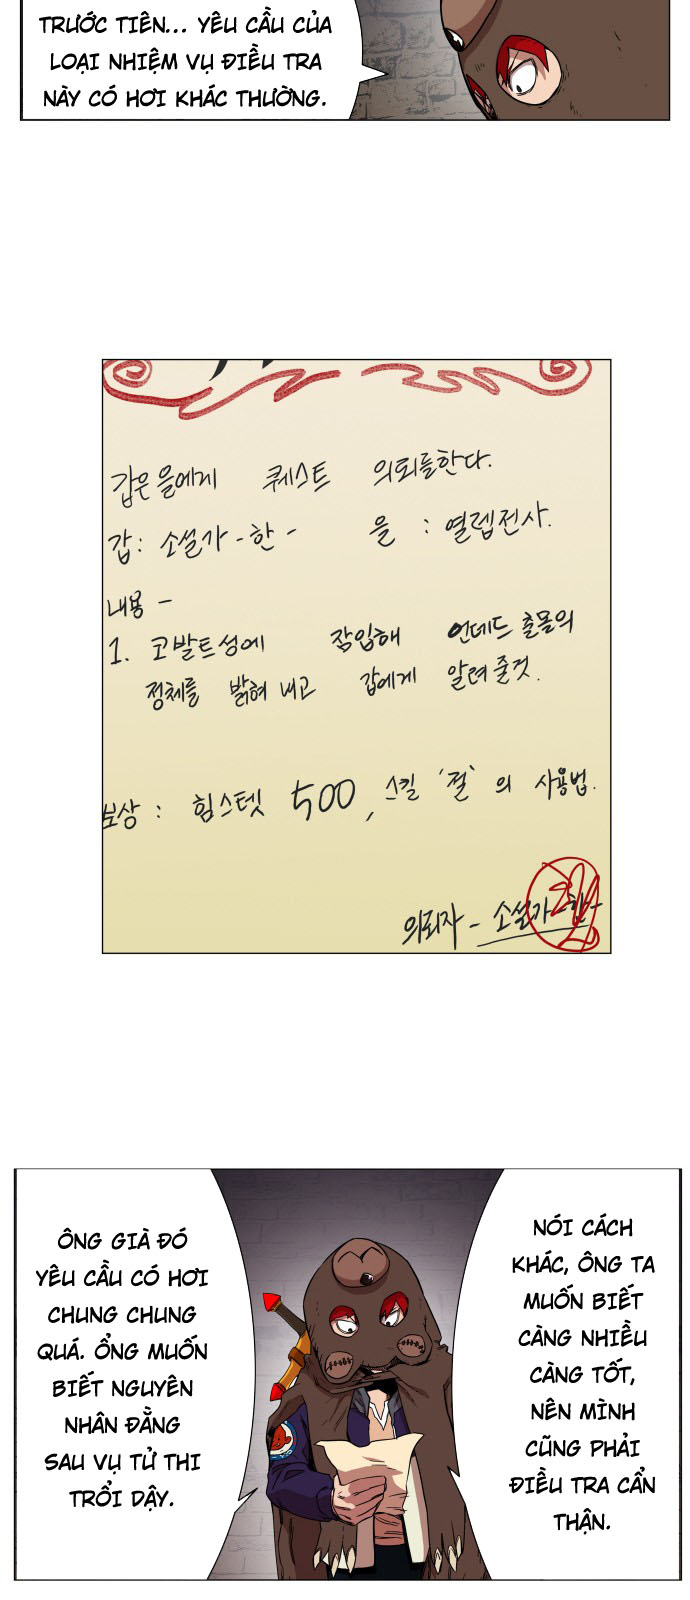 TRƯỚC TIÊN... YÊU CẦU CỦA
LOẠI NHIỆM VỤ ĐIỀU TRA
NÀY CÓ HƠI KHÁC THƯỜNG.
갑은 을에게 퀘스트 의뢰를한다.
갑: 소설가-한- 을 : 열렙전사.
내용 -
1. 코발트성에 잠입해 언데드 출몰의
정체를 밝혀내고 갑에게 알려줄것.
보상 : 힘스텟 500, 스킬 '절'의 사용법.
의뢰자 - 소설가-한-
ÔNG GIÀ ĐÓ
YÊU CẦU CÓ HƠI
CHUNG CHUNG
QUÁ. ỔNG MUỐN
BIẾT NGUYÊN
NHÂN ĐẰNG
SAU VỤ TỬ THI
TRỔI DẬY.
NÓI CÁCH
KHÁC, ÔNG TA
MUỐN BIẾT
CÀNG NHIỀU
CÀNG TỐT,
NÊN MÌNH
CŨNG PHẢI
ĐIỀU TRA CẨN
THẬN.